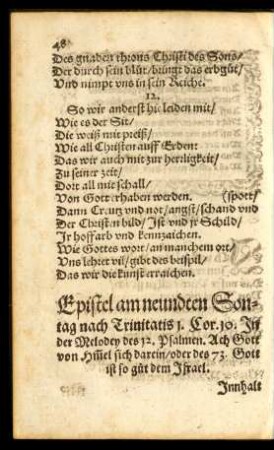 48
Des gnaden throns Christi des Sons/
Der durch sein blůt/ bringt das erbgůt/
Vnd nimpt vns in sein Reiche.
12.
So wir anderst hie leiden mit/
Wie es der Sit/
Die weiß mit preiß/
Wie all Christen auff Erden:
Das wir auch mit zur herzligkeit/
Zu seiner zeit/
Dort all mit schall/
Von Gott erhaben werden. (spott/
Dann Creutz vnd not/ angst/ schand vnd
Der Christen bild/ Ist vnd jr Schild/
Jr hoffarb vnd kennzaichen.
Wie Gottes wort/ an manchem ort/
Vns lehret vil/ gibt des beispil/
Das wir die kunst erraichen.
Epistel am neundten Son-
tag nach Trinitatis 1. Cor. 10. In
der Melodey des 12. Psalmen. Ach Gott
von Him̄el sich darein/ oder des 73. Gott
ist so gůt dem Israel.
Innhalt